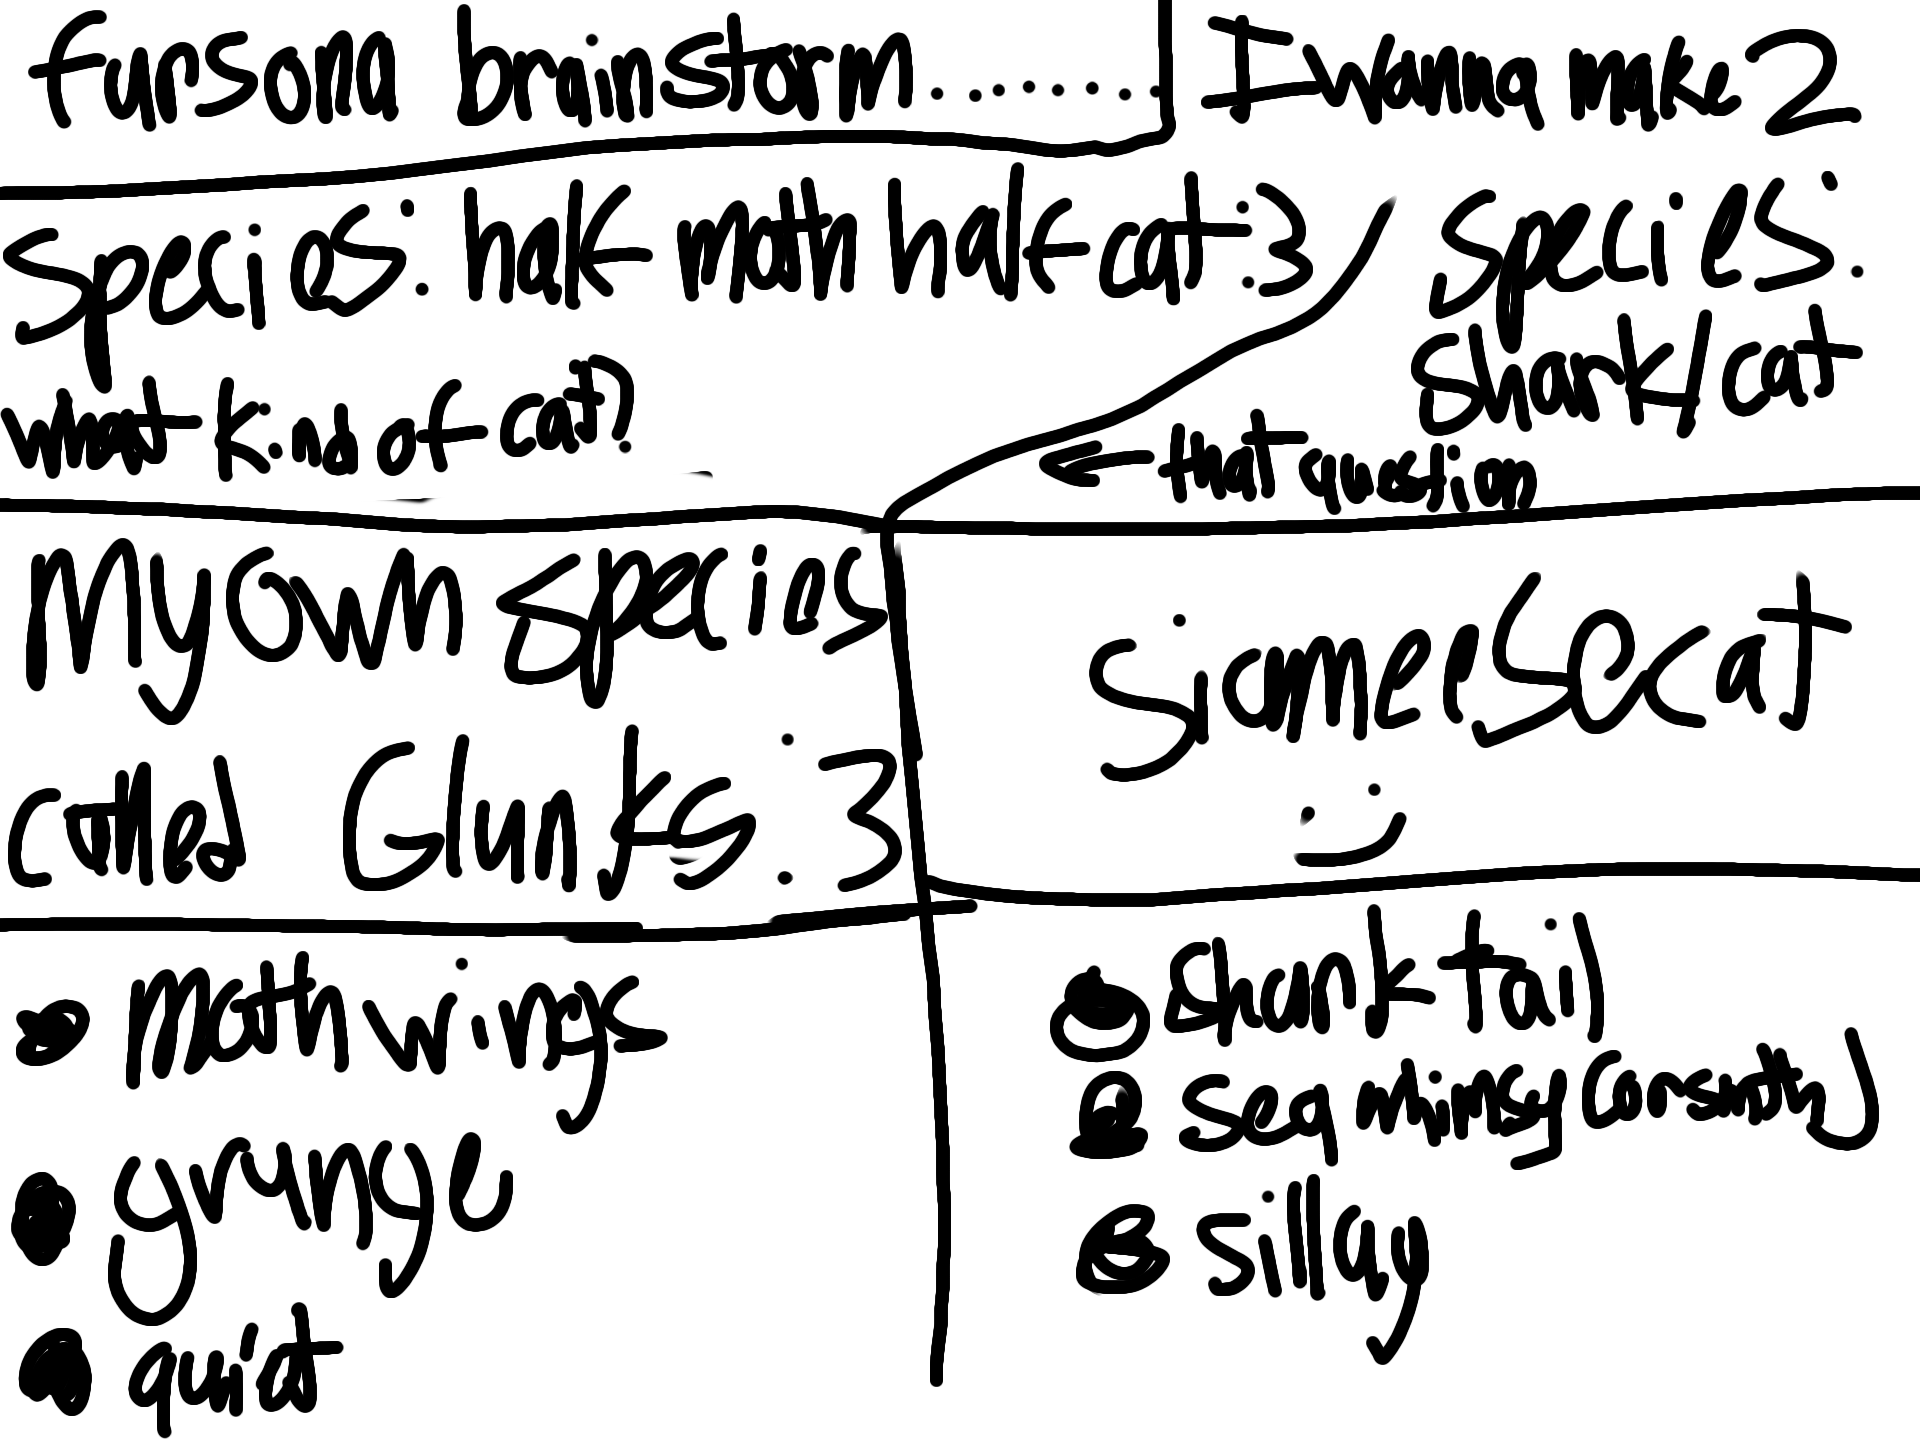 fursona brainstorm.........
I wanna make 2
species: half moth half cat :3
what kind of cat?
species:
shark/cat
← that question
My own species
called Glunks :3
siameese cat
:)
• Moth wings
• grunge
• quiet
• shark tail
• sea whimsy (or smth)
• sillay